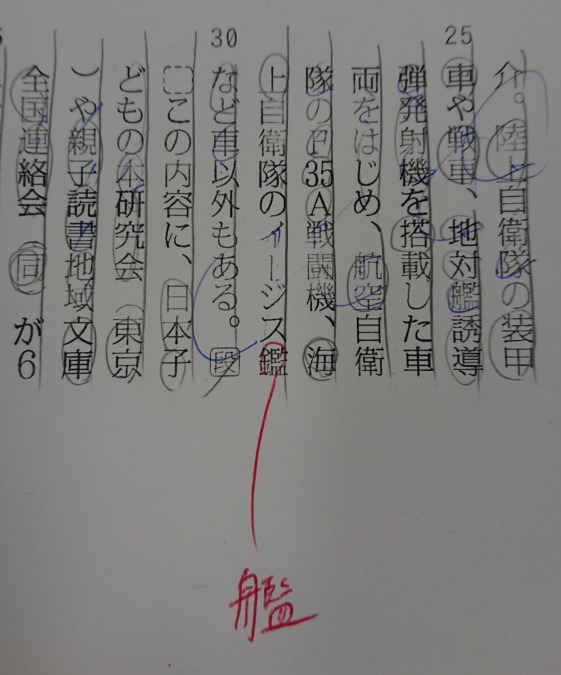 25
30
介。陸上自衛隊の装甲
車や戦車、地対艦誘導
弾発射機を搭載した車
両をはじめ、航空自衛
隊のF35A戦闘機、海
上自衛隊のイージス鑑
など車以外もある。段
この内容に、日本子
どもの本研究会（東京
）や親子読書地域文庫
全国連絡会（同）が6
艦